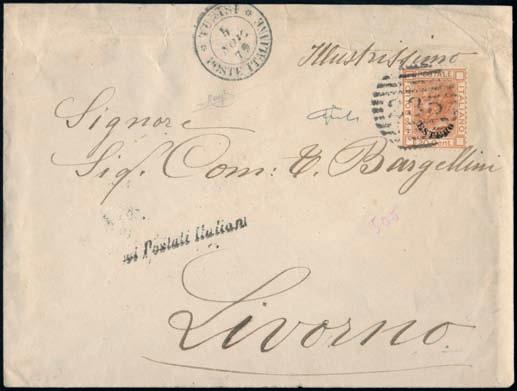 TUNISI
4
NOV
79
POSTE ITALIANE
Illustrissimo
POSTALE
ITALIANO
235
ESTERO
20 Cent
Signore
Sig. Com. T. Bargellini
505
Postali Italiani
Livorno